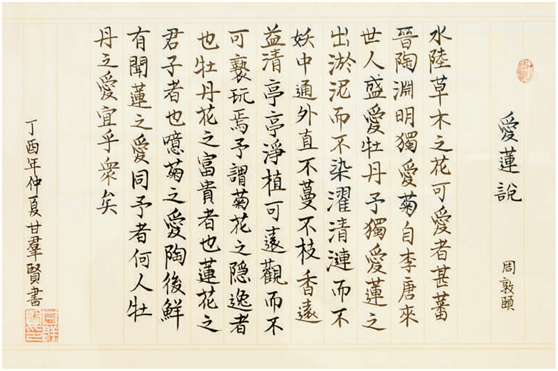 愛蓮說
周敦頤
水陸草木之花可愛者甚蕃
晉陶淵明獨愛菊自李唐來
世人盛愛牡丹予獨愛蓮之
出淤泥而不染濯清漣而不
妖中通外直不蔓不枝香遠
益清亭亭淨植可遠觀而不
可褻玩焉予謂菊花之隐逸者
也牡丹花之富貴者也蓮花之
君子者也噫菊之愛陶後鮮
有聞蓮之愛同予者何人牡
丹之愛宜乎衆矣
丁酉年仲夏甘羣賢書